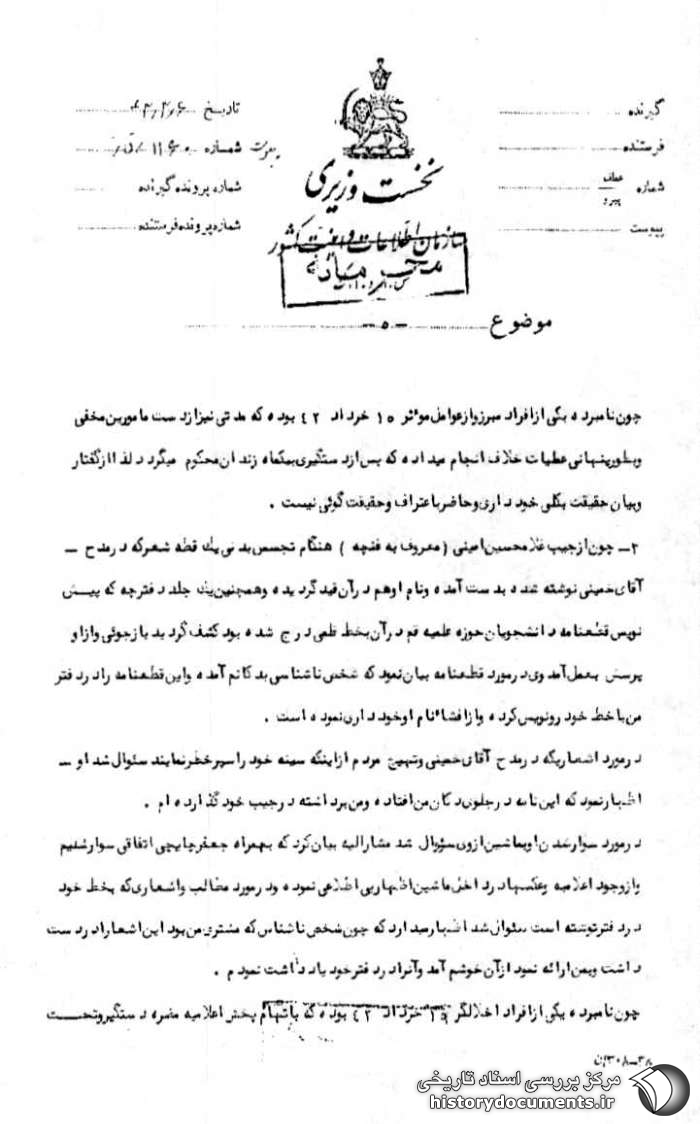 گیرنده
فرستنده
شماره عطف پیرو
پیوست
نخست وزیری
سازمان اطلاعات و امنیت کشور
محرمانه
تاریخ ۴۳٫۴٫۶
شماره
شماره پرونده گیرنده
شماره پرونده فرستنده
موضوع
چون نامبرده یکی از افراد مبرز و از عوامل موثر ۱۵ خرداد ۴۲ بوده که مدتی نیز از دست مامورین مخفی
و بطور پنهانی عملیات خلاف انجام میداده که پس از دستگیری بیکماه زندان محکوم میگردد لذا از گفتار
و بیان حقیقت بکلی خود داری و حاضر باعتراف و حقیقت گوئی نیست .
۲ـ چون از جیب غلامحسین امینی ( معروف به فتچه ) هنگام تجسس بدنی یك قطه شعر که در مدح ـ
آقای خمینی نوشته شده بدست آمده و نام او هم در آن قید گردیده و همچنین یك جلد دفترچه که پیش
نویس قطعنامه دانشجویان حوزه علمیه قم در آن بخط قلمی درج شده بود کشف گردید بازجوئی و ازاو
پرسش بعمل آمد وی در مورد قطعنامه بیان نمود که شخص ناشناسی بدکانم آمده و این قطعنامه را در دفتر
من با خط خود رونویس کرده و از افشاء نام او خود داری نموده است .
در مورد اشعاریکه در مدح آقای خمینی و تهییج مردم از اینکه سینه خود را سپر خطر نمایند سئوال شد او ـ
اظهار نمود که این نامه در جلوی دکان من افتاده و من برداشته در جیب خود گذارده ام .
در مورد سوار شدن او بماشین از وی سؤوال شد مشارالیه بیان کرد که بهمراه جعفر چایچی اتفاقی سوار شدیم
و از وجود اعلامیه و عکسها در داخل ماشین اظهار بی اطلاعی نموده و در مورد مطالب و اشعاری که بخط خود
در دفتر نوشته است سئوال شد اظهار میدارد که چون شخص ناشناس که مشتری من بود این اشعار را در دست
داشت و بمن ارائه نمود از آن خوشم آمد و آنرا در دفتر خود یاد داشت نمودم .
چون نامبرده یکی از افراد اخلالگر ۱۵ خرداد ۴۲ بوده که باتهام پخش اعلامیه مضره دستگیر و تحت
مرکز بررسی اسناد تاریخی
historydocuments.ir